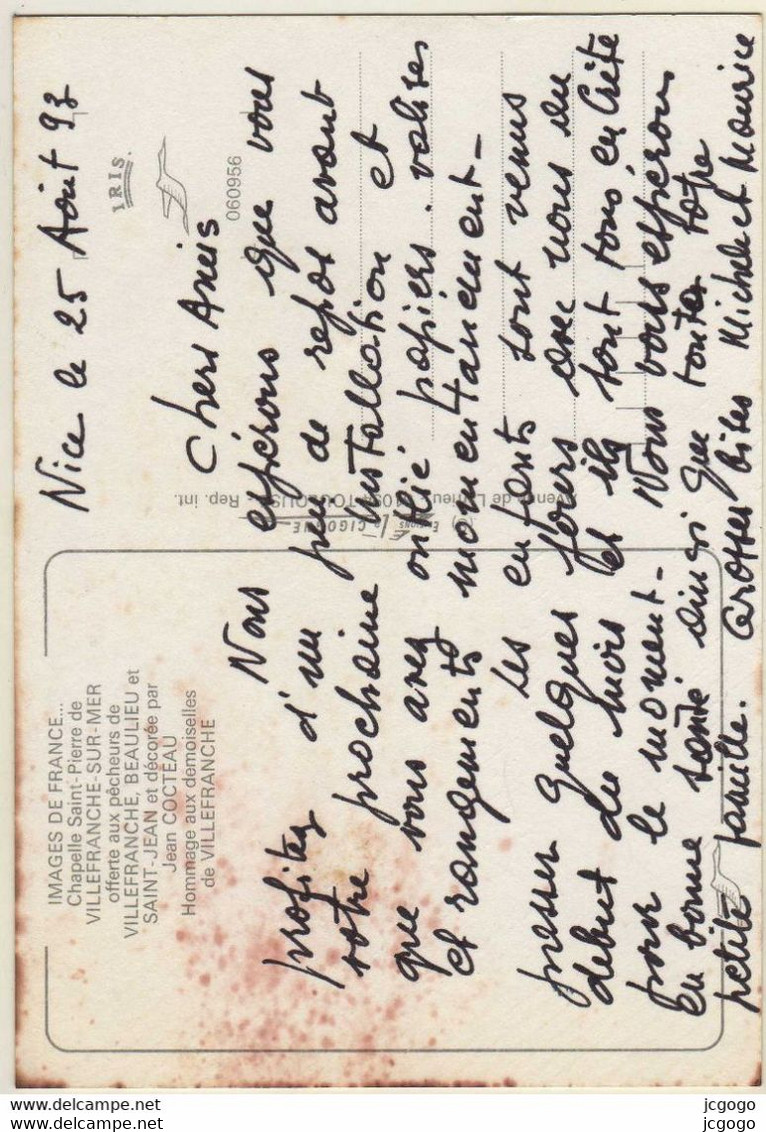 Nice le 25 Août 93
IRIS.
060956
Chers Amis
Nous espérons que vous
profitez d'un peu de repos avant
votre prochaine installation et
que vous avez oublié papiers. valises
et rangements momentanément_
Les enfants sont venus
passer quelques jours avec nous au
début du mois et ils sont tous en Crète
pour le moment_ Nous vous espérons
en bonne santé ainsi que toute votre
petite famille. Grosses bises Michele et Maurice
IMAGES DE FRANCE...
Chapelle Saint-Pierre de
VILLEFRANCHE-SUR-MER
offerte aux pêcheurs de
VILLEFRANCHE, BEAULIEU et
SAINT-JEAN et décorée par
Jean COCTEAU
Hommage aux demoiselles
de VILLEFRANCHE
EDITIONS LA CIGOGNE
Avenue de
TOULOUSE - Rep. int.
www.delcampe.net
www.delcampe.net
jcgogo
jcgogo